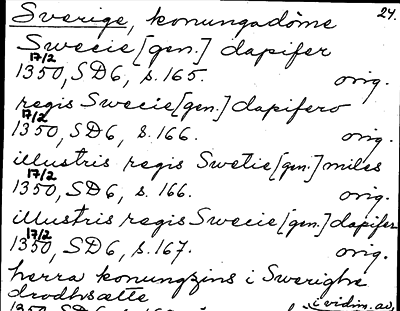 Sverige, konungadöme 24.
Swecie [gen.] dapifer
17/2
1350, SD6, s. 165. orig.
regis Swecie [gen.] dapifero
17/2
1350, SD6, s. 166. orig.
illustris regis Swetie [gen.] miles
17/2
1350, SD6, s. 166. orig.
illustris regis Swecie [gen.] dapifer
17/2
1350, SD6, s. 167. orig.
herra konungzins i Swerighe
drodhsætte
i vidim. av